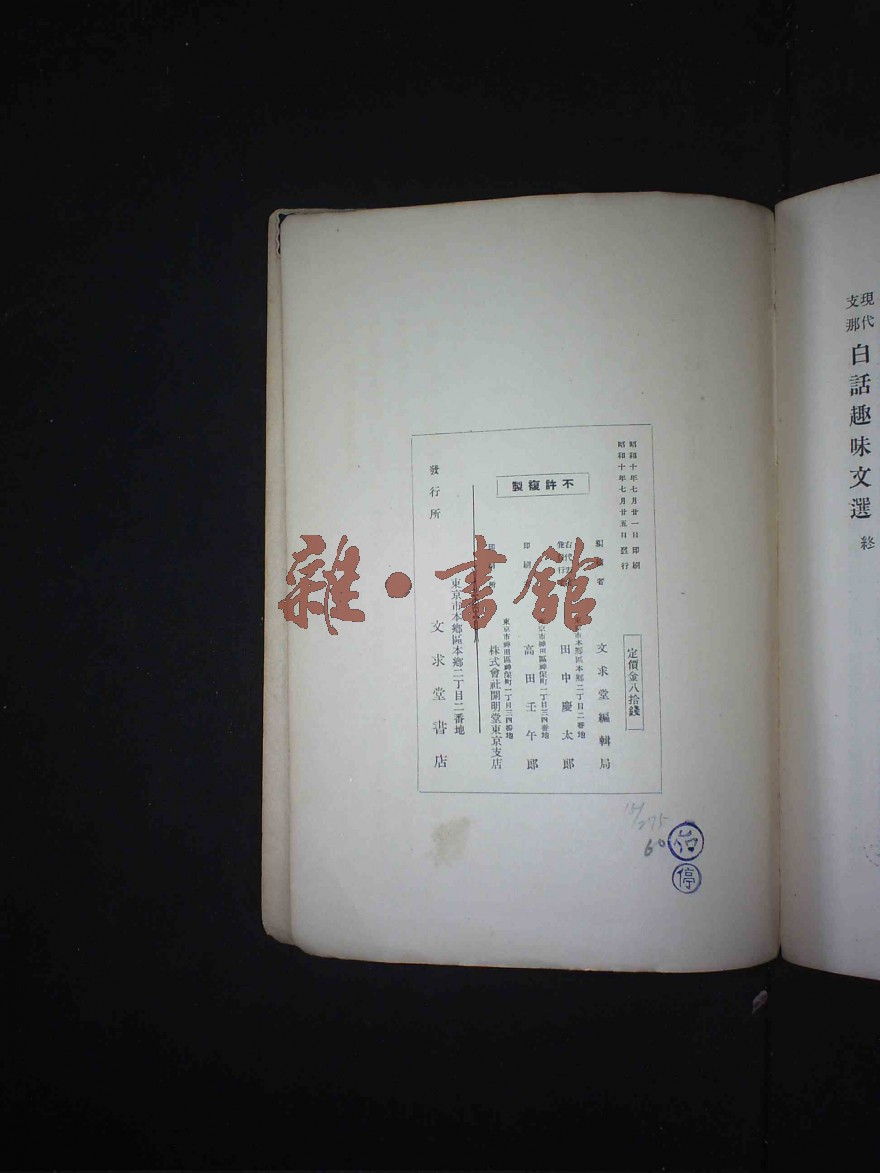 現代
支那
白話趣味文選 終
昭和十年七月廿一日 印刷
昭和十年七月廿五日 發行
定價金八拾錢
不許複製
文求堂編輯局
東京市本鄕區本鄕二丁目二番地
田中慶太郎
東京市神田區神保町一丁目三四番地
印刷
高田壬午郎
東京市神田區神保町一丁目三四番地
株式會社開明堂東京支店
發行所
東京市本鄕區本鄕二丁目二番地
文求堂書店
雜·書館
60
停